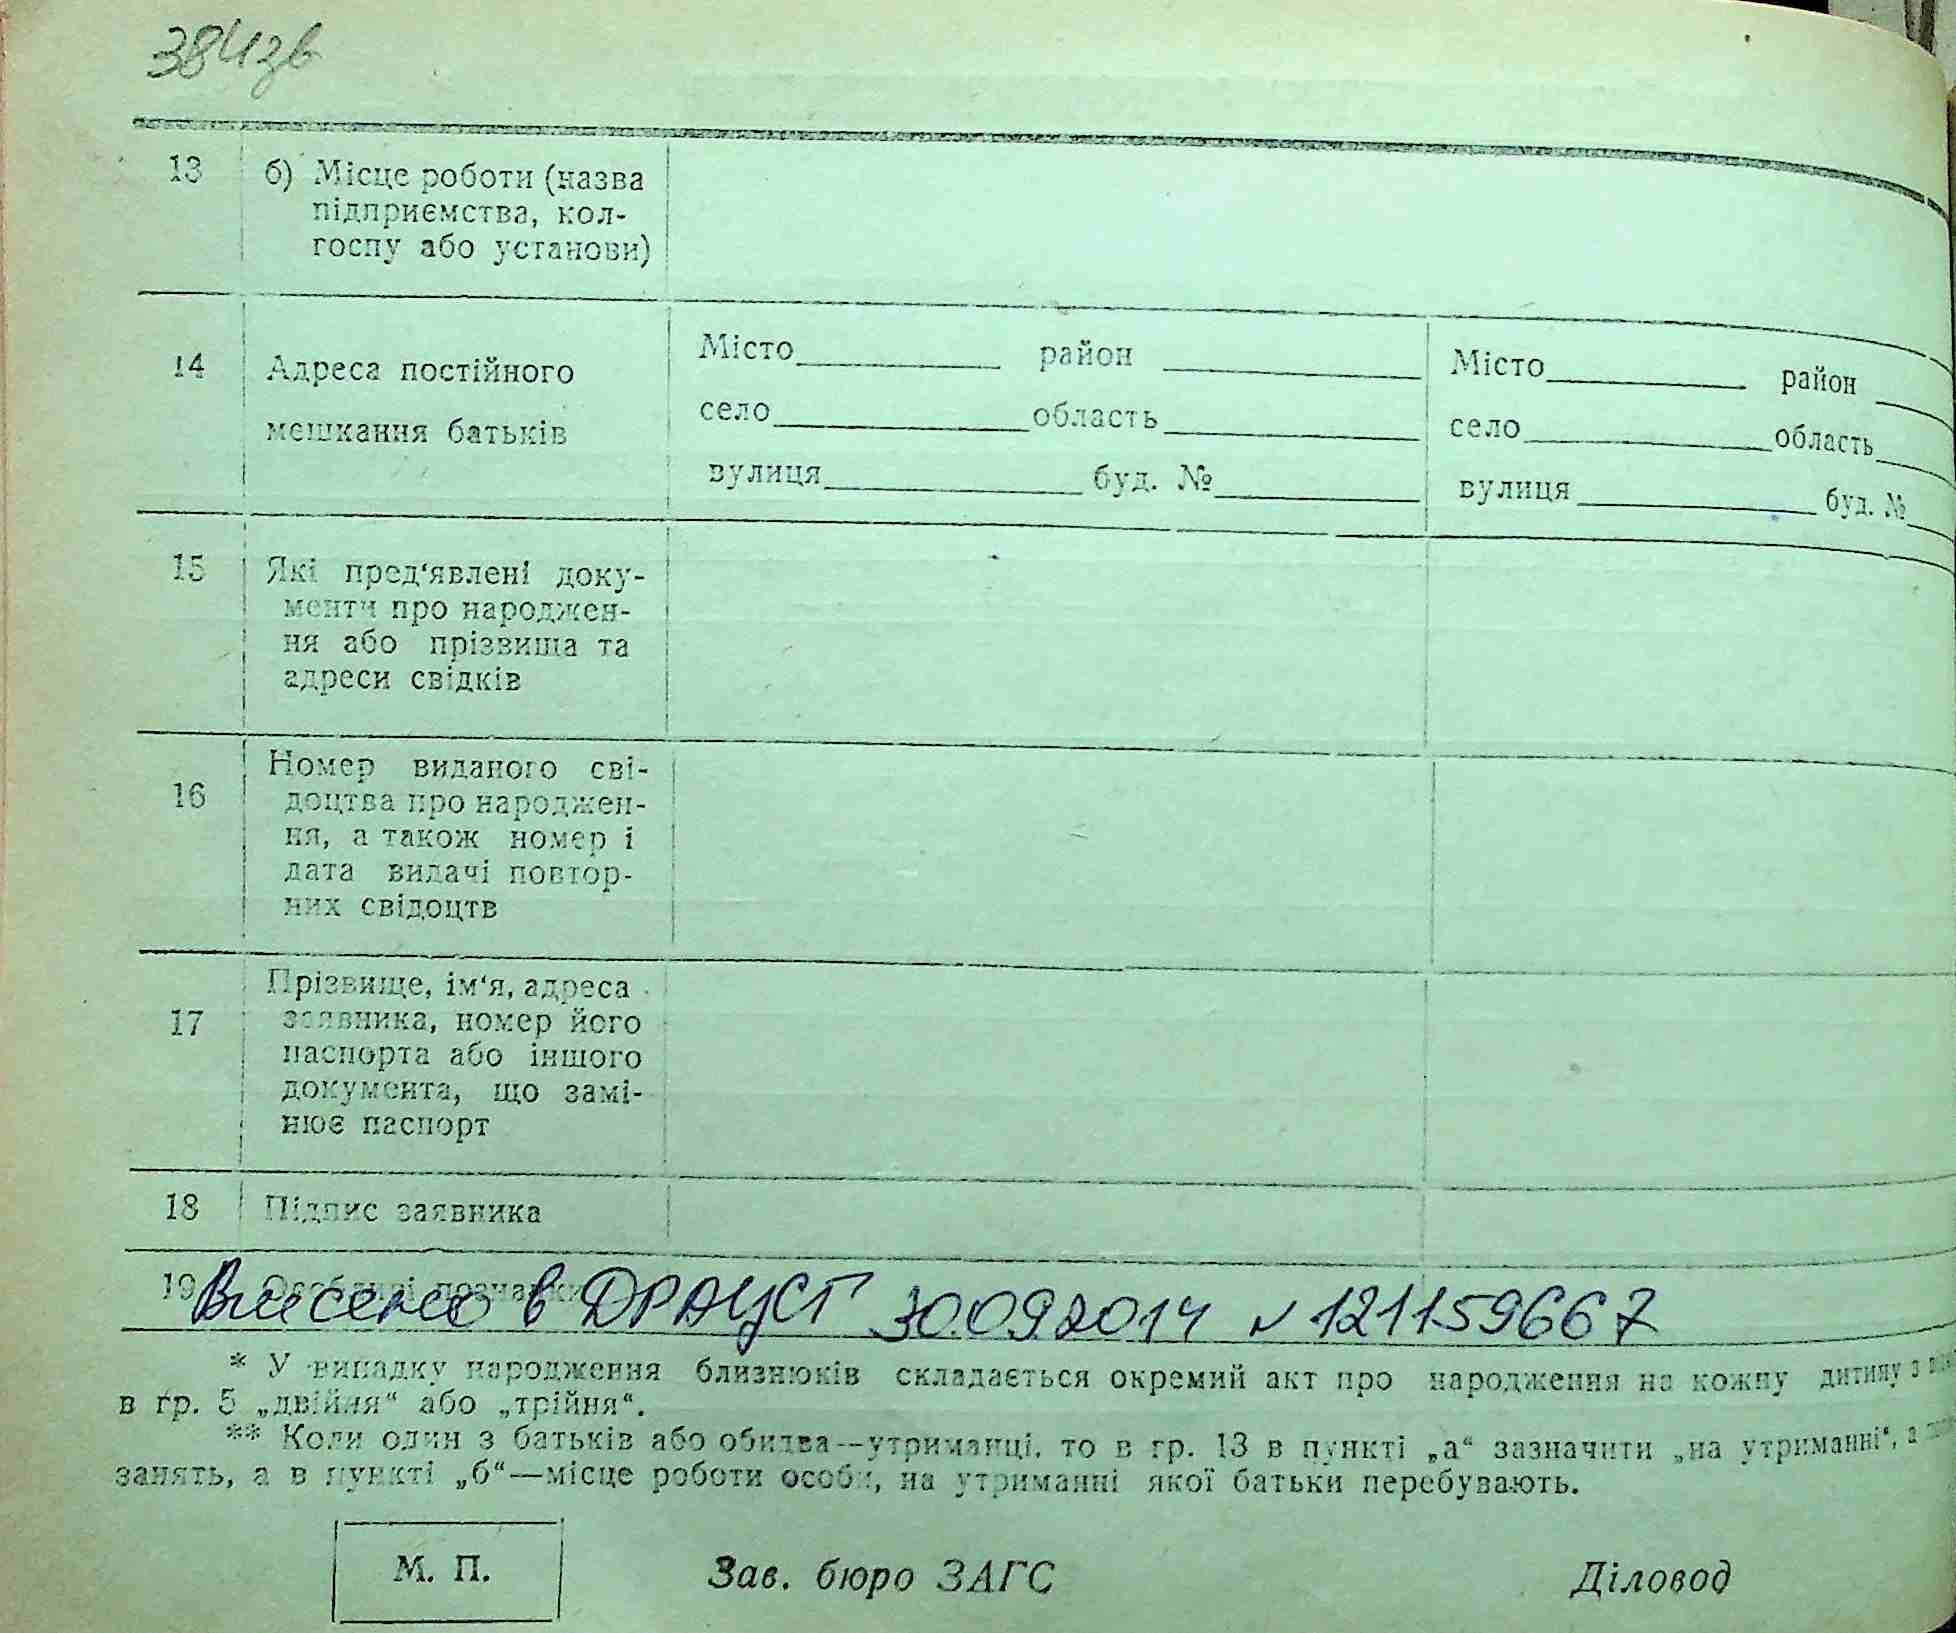 384зв
13 б) Місце роботи (назва
підприємства, кол-
госпу або установи)
14 Адреса постійного
мешкання батьків
Місто район
село область
вулиця буд. №
Місто район
село область
вулиця буд. №
15 Які пред‘явлені доку-
менти про народжен-
ня або прізвища та
адреси свідків
16 Номер виданого сві-
доцтва про народжен-
ня, а також номер і
дата видачі повтор-
них свідоцтв
17 Прізвище, ім‘я, адреса
заявника, номер його
паспорта або іншого
документа, що замі-
нює паспорт
18 Підпис заявника
19 Особливі позначки
Внесено в ДРАЦСГ 30.09.2014 № 121159667
* У випадку народження близнюків складається окремий акт про народження на кожну дитину з
в гр. 5 „двійня“ або „трійня“.
** Коли один з батьків або обидва—утриманці, то в гр. 13 в пункті „а“ зазначити „на утриманні“, а
занять, а в пункті „б“—місце роботи особи, на утриманні якої батьки перебувають.
М. П. Зав. бюро ЗАГС Діловод